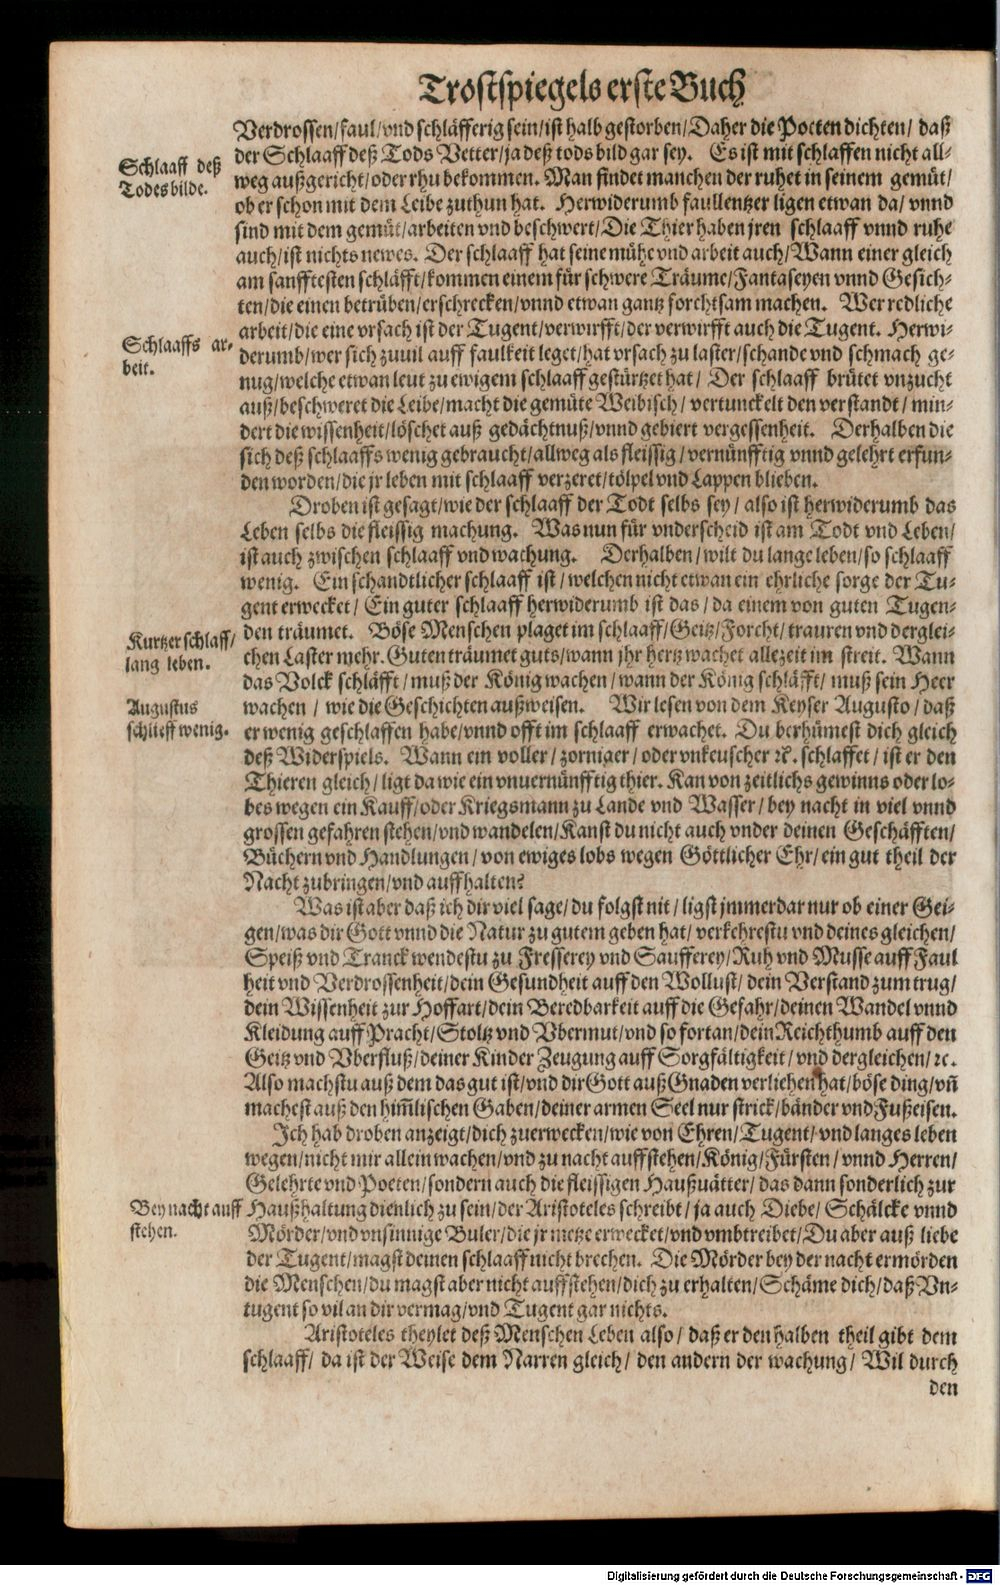 Trostspiegels erste Buch
Verdrossen/faul/vnd schläfferig sein/ist halb gestorben/Daher die Poeten dichten/ daß
der Schlaaff deß Tods Vetter/ja deß tods bild gar sey. Es ist mit schlaffen nicht all-
Schlaaff deß
Todes bilde.
weg außgericht/oder rhu bekommen. Man findet manchen der ruhet in seinem gemüt/
ob er schon mit dem Leibe zuthun hat. Herwiderumb faullentzer ligen etwan da/ vnnd
sind mit dem gemüt/arbeiten vnd beschwert/Die Thier haben jren schlaaff vnnd ruhe
auch/ist nichts newes. Der schlaaff hat seine mühe vnd arbeit auch/Wann einer gleich
am sanfftesten schläfft/kommen einem für schwere Träume/Fantaseyen vnnd Gesich-
ten/die einen betrüben/erschrecken/vnnd etwan gantz forchtsam machen. Wer redliche
arbeit/die eine vrsach ist der Tugent/verwirfft/der verwirfft auch die Tugent. Herwi-
Schlaaffs ar-
beit.
derumb/wer sich zuuil auff faulkeit leget/hat vrsach zu laster/schande vnd schmach ge-
nug/welche etwan leut zu ewigem schlaaff gestürtzet hat/ Der schlaaff brütet vnzucht
auß/beschweret die Leibe/macht die gemüte Weibisch/ vertunckelt den verstandt/ min-
dert die wissenheit/löschet auß gedächtnuß/vnnd gebiert vergessenheit. Derhalben die
sich deß schlaaffs wenig gebraucht/allweg als fleissig/vernünfftig vnnd gelehrt erfun-
den worden/die jr leben mit schlaaff verzeret/tölpel vnd Lappen blieben.
Droben ist gesagt/wie der schlaaff der Todt selbs sey/ also ist herwiderumb das
Leben selbs die fleissig machung. Was nun für vnderscheid ist am Todt vnd Leben/
ist auch zwischen schlaaff vnd wachung. Derhalben/wilt du lange leben/so schlaaff
wenig. Ein schandtlicher schlaaff ist/welchen nicht etwan ein ehrliche sorge der Tu-
gent erwecket/ Ein guter schlaaff herwiderumb ist das/da einem von guten Tugen-
Kurtzer schlaff/
lang leben.
den träumet. Böse Menschen plaget im schlaaff/Geitz/Forcht/trauren vnd derglei-
chen Laster mehr. Guten träumet guts/wann jhr hertz wachet allezeit im streit. Wann
das Volck schläfft/muß der König wachen/wann der König schläfft/ muß sein Heer
Augustus
schlieff wenig.
wachen/ wie die Geschichten außweisen. Wir lesen von dem Keyser Augusto/daß
er wenig geschlaffen habe/vnnd offt im schlaaff erwachet. Du berhümest dich gleich
deß Widerspiels. Wann ein voller/zorniger/oder vnkeuscher ꝛc. schlaffet/ist er den
Thieren gleich/ligt da wie ein vnuernünfftig thier. Kan von zeitlichs gewinns oder lo-
bes wegen ein Kauff/oder Kriegsmann zu Lande vnd Wasser/bey nacht in viel vnnd
grossen gefahren stehen/vnd wandelen/Kanst du nicht auch vnder deinen Geschäfften/
Büchern vnd Handlungen/von ewiges lobs wegen Göttlicher Ehr/ein gut theil der
Nacht zubringen/vnd auffhalten?
Was ist aber daß ich dir viel sage/du folgst nit/ligst jmmerdar nur ob einer Gei-
gen/was dir Gott vnnd die Natur zu gutem geben hat/ verkehrestu vnd deines gleichen/
Speiß vnd Tranck wendestu zu Fresserey vnd Saufferey/Ruh vnd Musse auff Faul
heit vnd Verdrossenheit/dein Gesundheit auff den Wollust/dein Verstand zum trug/
dein Wissenheit zur Hoffart/dein Beredbarkeit auff die Gefahr/deinen Wandel vnnd
Kleidung auff Pracht/Stoltz vnd Vbermut/vnd so fortan/dein Reichthumb auff den
Geitz vnd Vberfluß/deiner Kinder Zeugung auff Sorgfältigkeit/vnd dergleichen/ꝛc.
Also machstu auß dem das gut ist/vnd dir Gott auß Gnaden verliehen hat/böse ding/vñ
machest auß den him̃lischen Gaben/deiner armen Seel nur strick/bänder vnd Fußeisen.
Ich hab droben anzeigt/dich zuerwecken/wie von Ehren/Tugent/vnd langes leben
wegen/nicht mir allein wachen/vnd zu nacht auffstehen/König/Fürsten/vnnd Herren/
Gelehrte vnd Poeten/sondern auch die fleissigen Haußuätter/das dann sonderlich zur
Bey nacht auff
stehen.
Haußhaltung dienlich zu sein/der Aristoteles schreibt/ja auch Diebe/ Schälcke vnnd
Mörder/vnd vnsinnige Buler/die jr metze erwecket/vnd vmbtreibet/Du aber auß liebe
der Tugent/magst deinen schlaaff nicht brechen. Die Mörder bey der nacht ermörden
die Menschen/du magst aber nicht auffstehen/dich zu erhalten/Schäme dich/daß Vn-
tugent so vil an dir vermag/vnd Tugent gar nichts.
Aristoteles theylet deß Menschen Leben also/daß er den halben theil gibt dem
schlaaff/ da ist der Weise dem Narren gleich/ den andern der wachung/ Wil durch
den
Digitalisierung gefördert durch die Deutsche Forschungsgemeinschaft - DFG